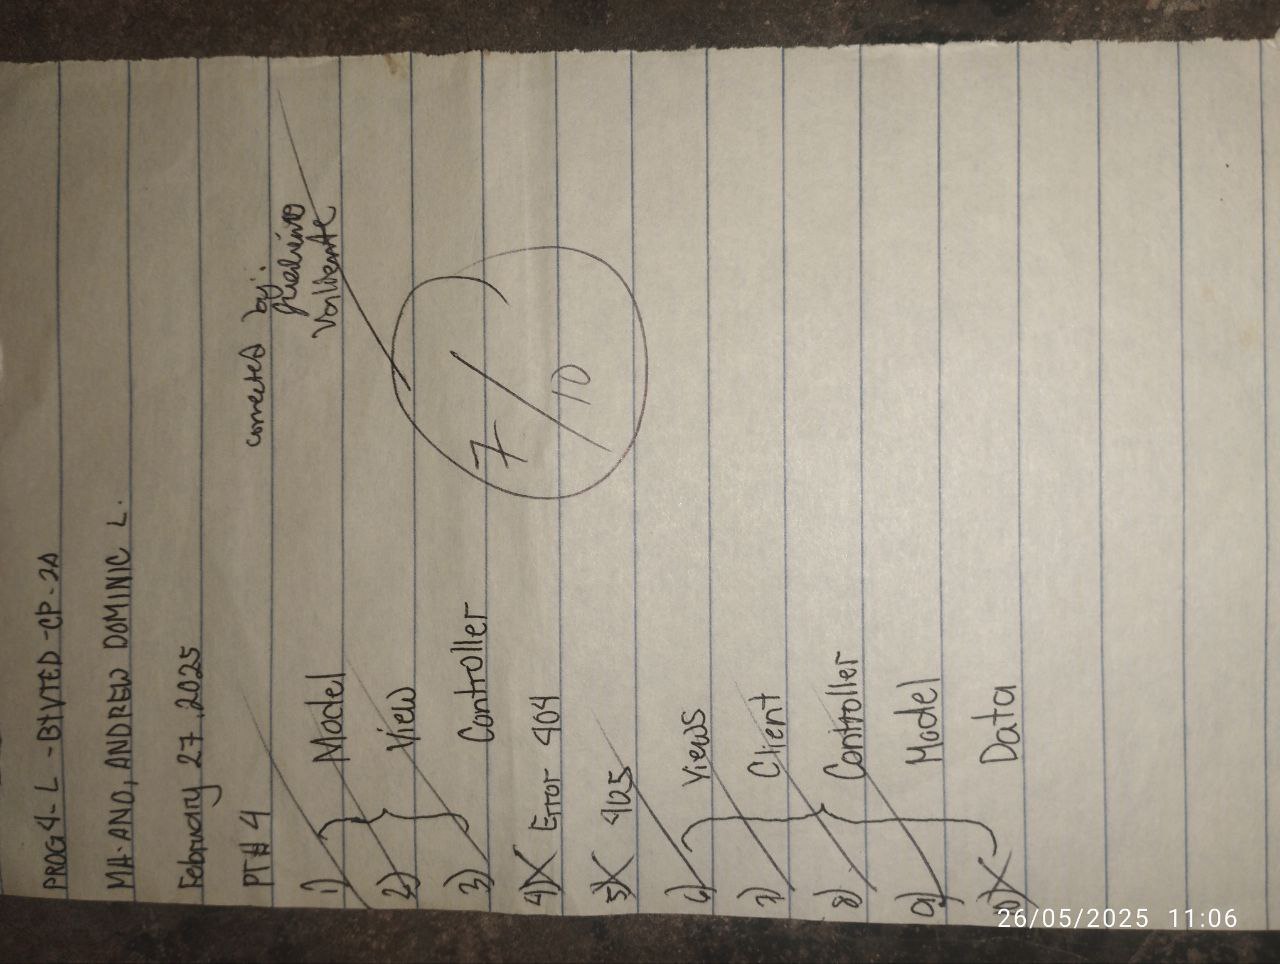 PROG4-L -BTVTED-CP-2A
MA-ANO, ANDREW DOMINIC L.
February 27, 2025
PT# 4
corrected by:
Valiente
1) Model
2) View
3) Controller
7/10
4) Error 404
5) 405
6) Views
7) Client
8) Controller
9) Model
10) Data
26/05/2025 11:06